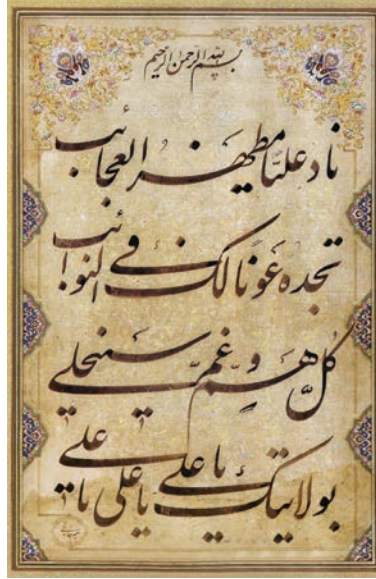 بسم الله الرحمن الرحیم
ناد علیًا مظهر العجائب
تجده عونًا لک فی النوائب
کلّ همّ وغمّ سینجلی
بولایتک یا علی یا علی یا علی